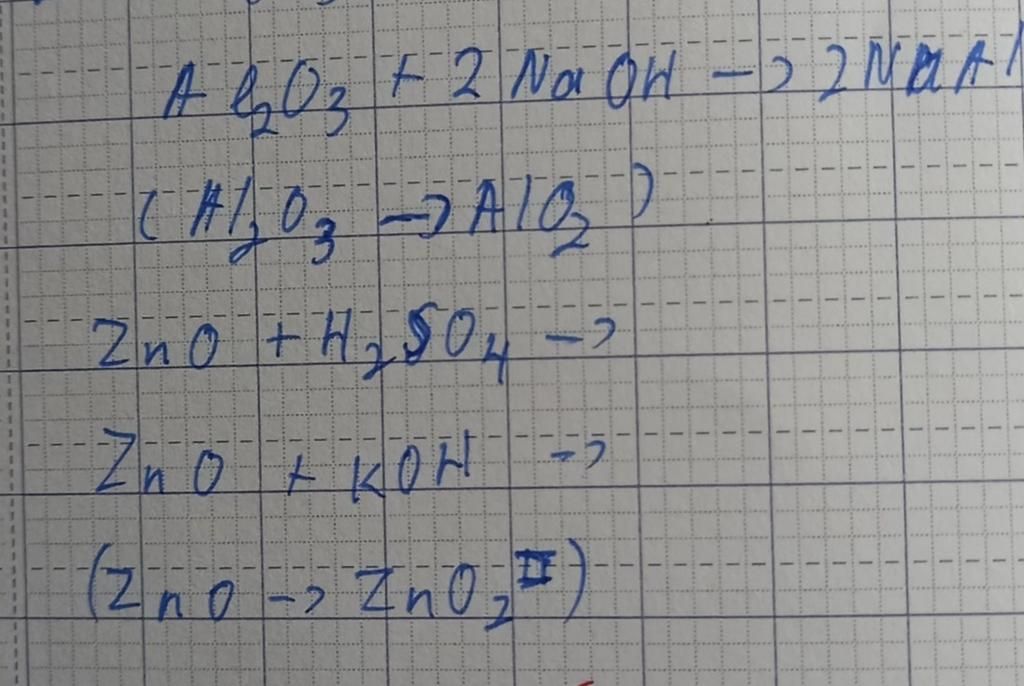 Al₂O₃ + 2 NaOH → 2NaAl
(Al₂O₃ → AlO₂)
ZnO + H₂SO₄ →
ZnO + KOH →
(ZnO → ZnO₂ᴵᴵ)